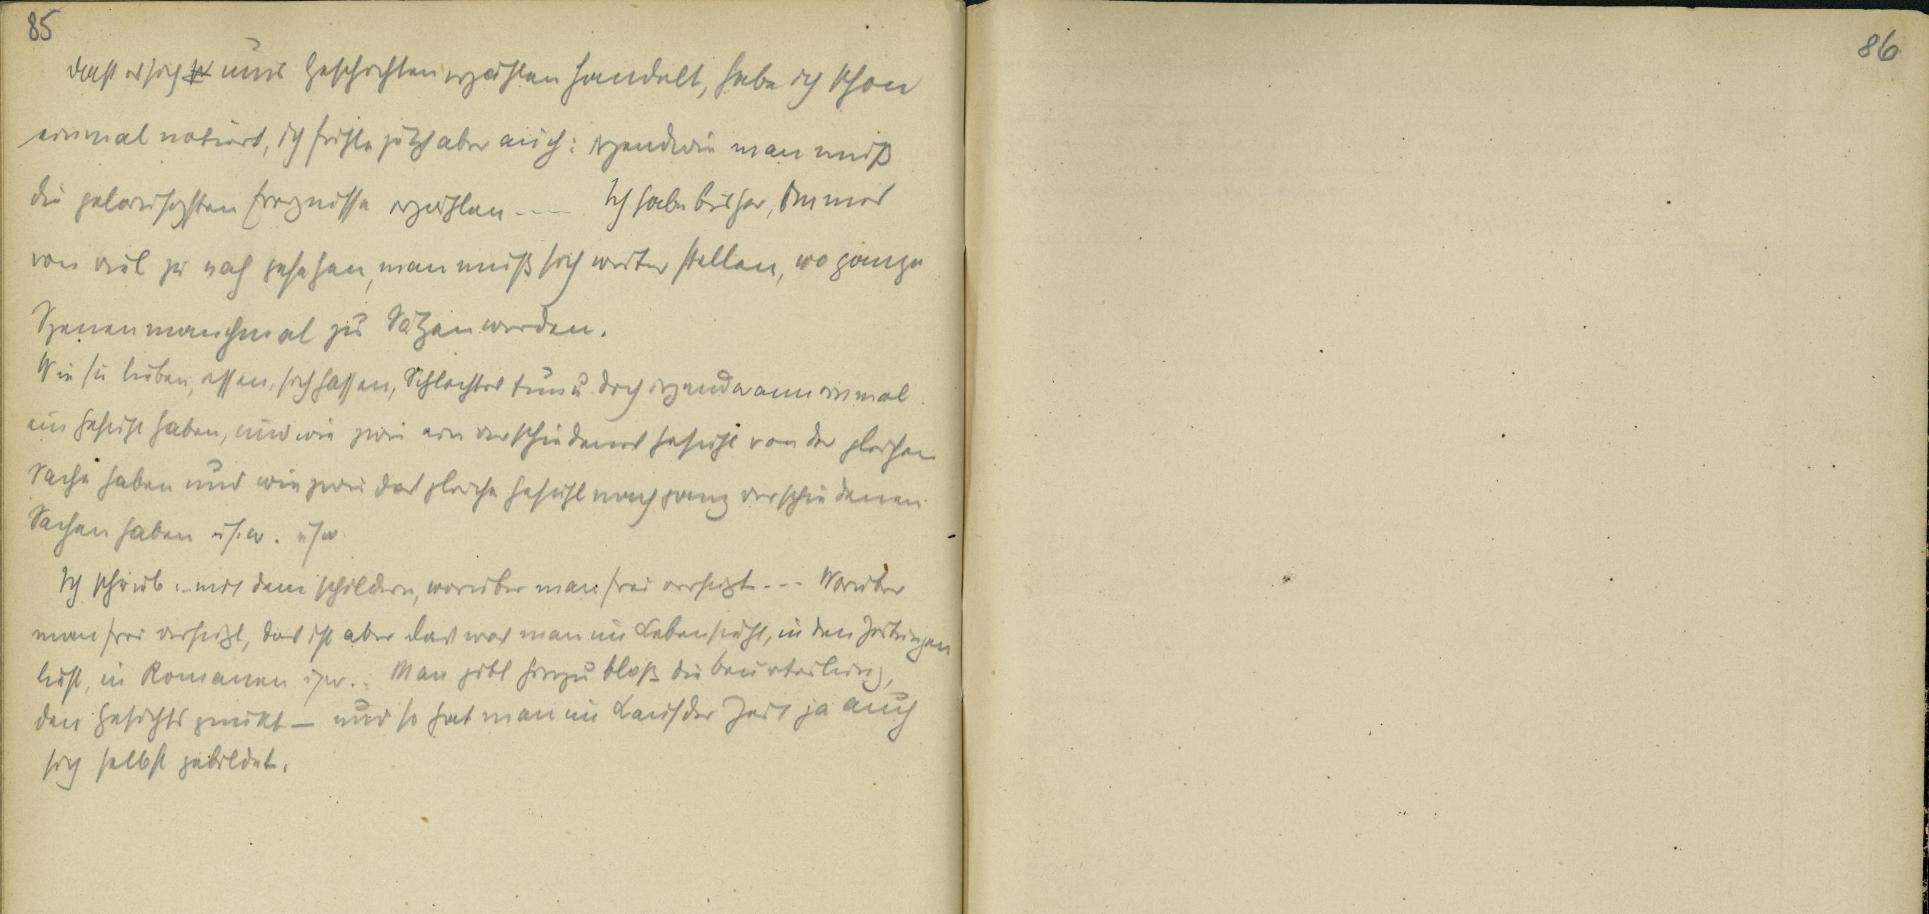 85
daß es sich ums Geschichtenerzählen handelt, habe ich schon
einmal notiert, ich fühle jetzt aber auch: irgendwie man muß
die gelariichsten Ereignisse erzählen --- Ich habe bisher, immer
von viel zu nah gesehen, man muß sich weiter stellen, wo ganze
Szenen manchmal zu Sätzen werden.
Wie sie lieben, essen, sich hassen, Schlechtes tun u doch irgendwann einmal
ein Gefühl haben, und wie zwei ein verschiedenes Gefühl von der gleichen
Sache haben und wie zwei das gleiche Gefühl nach ganz verschiedenen
Sachen haben u.s.w. usw
Ich schrieb: mit dem schildern, worüber man frei verfügt --- Worüber
man frei verfügt, das ist aber das was man im Leben sieht, in den Zeitungen
liest, in Romanen usw.. Man gibt hinzu bloß die Beurteilung,
den Gesichtspunkt — und so hat man im Lauf der Zeit ja auch
sich selbst gebildet.
86